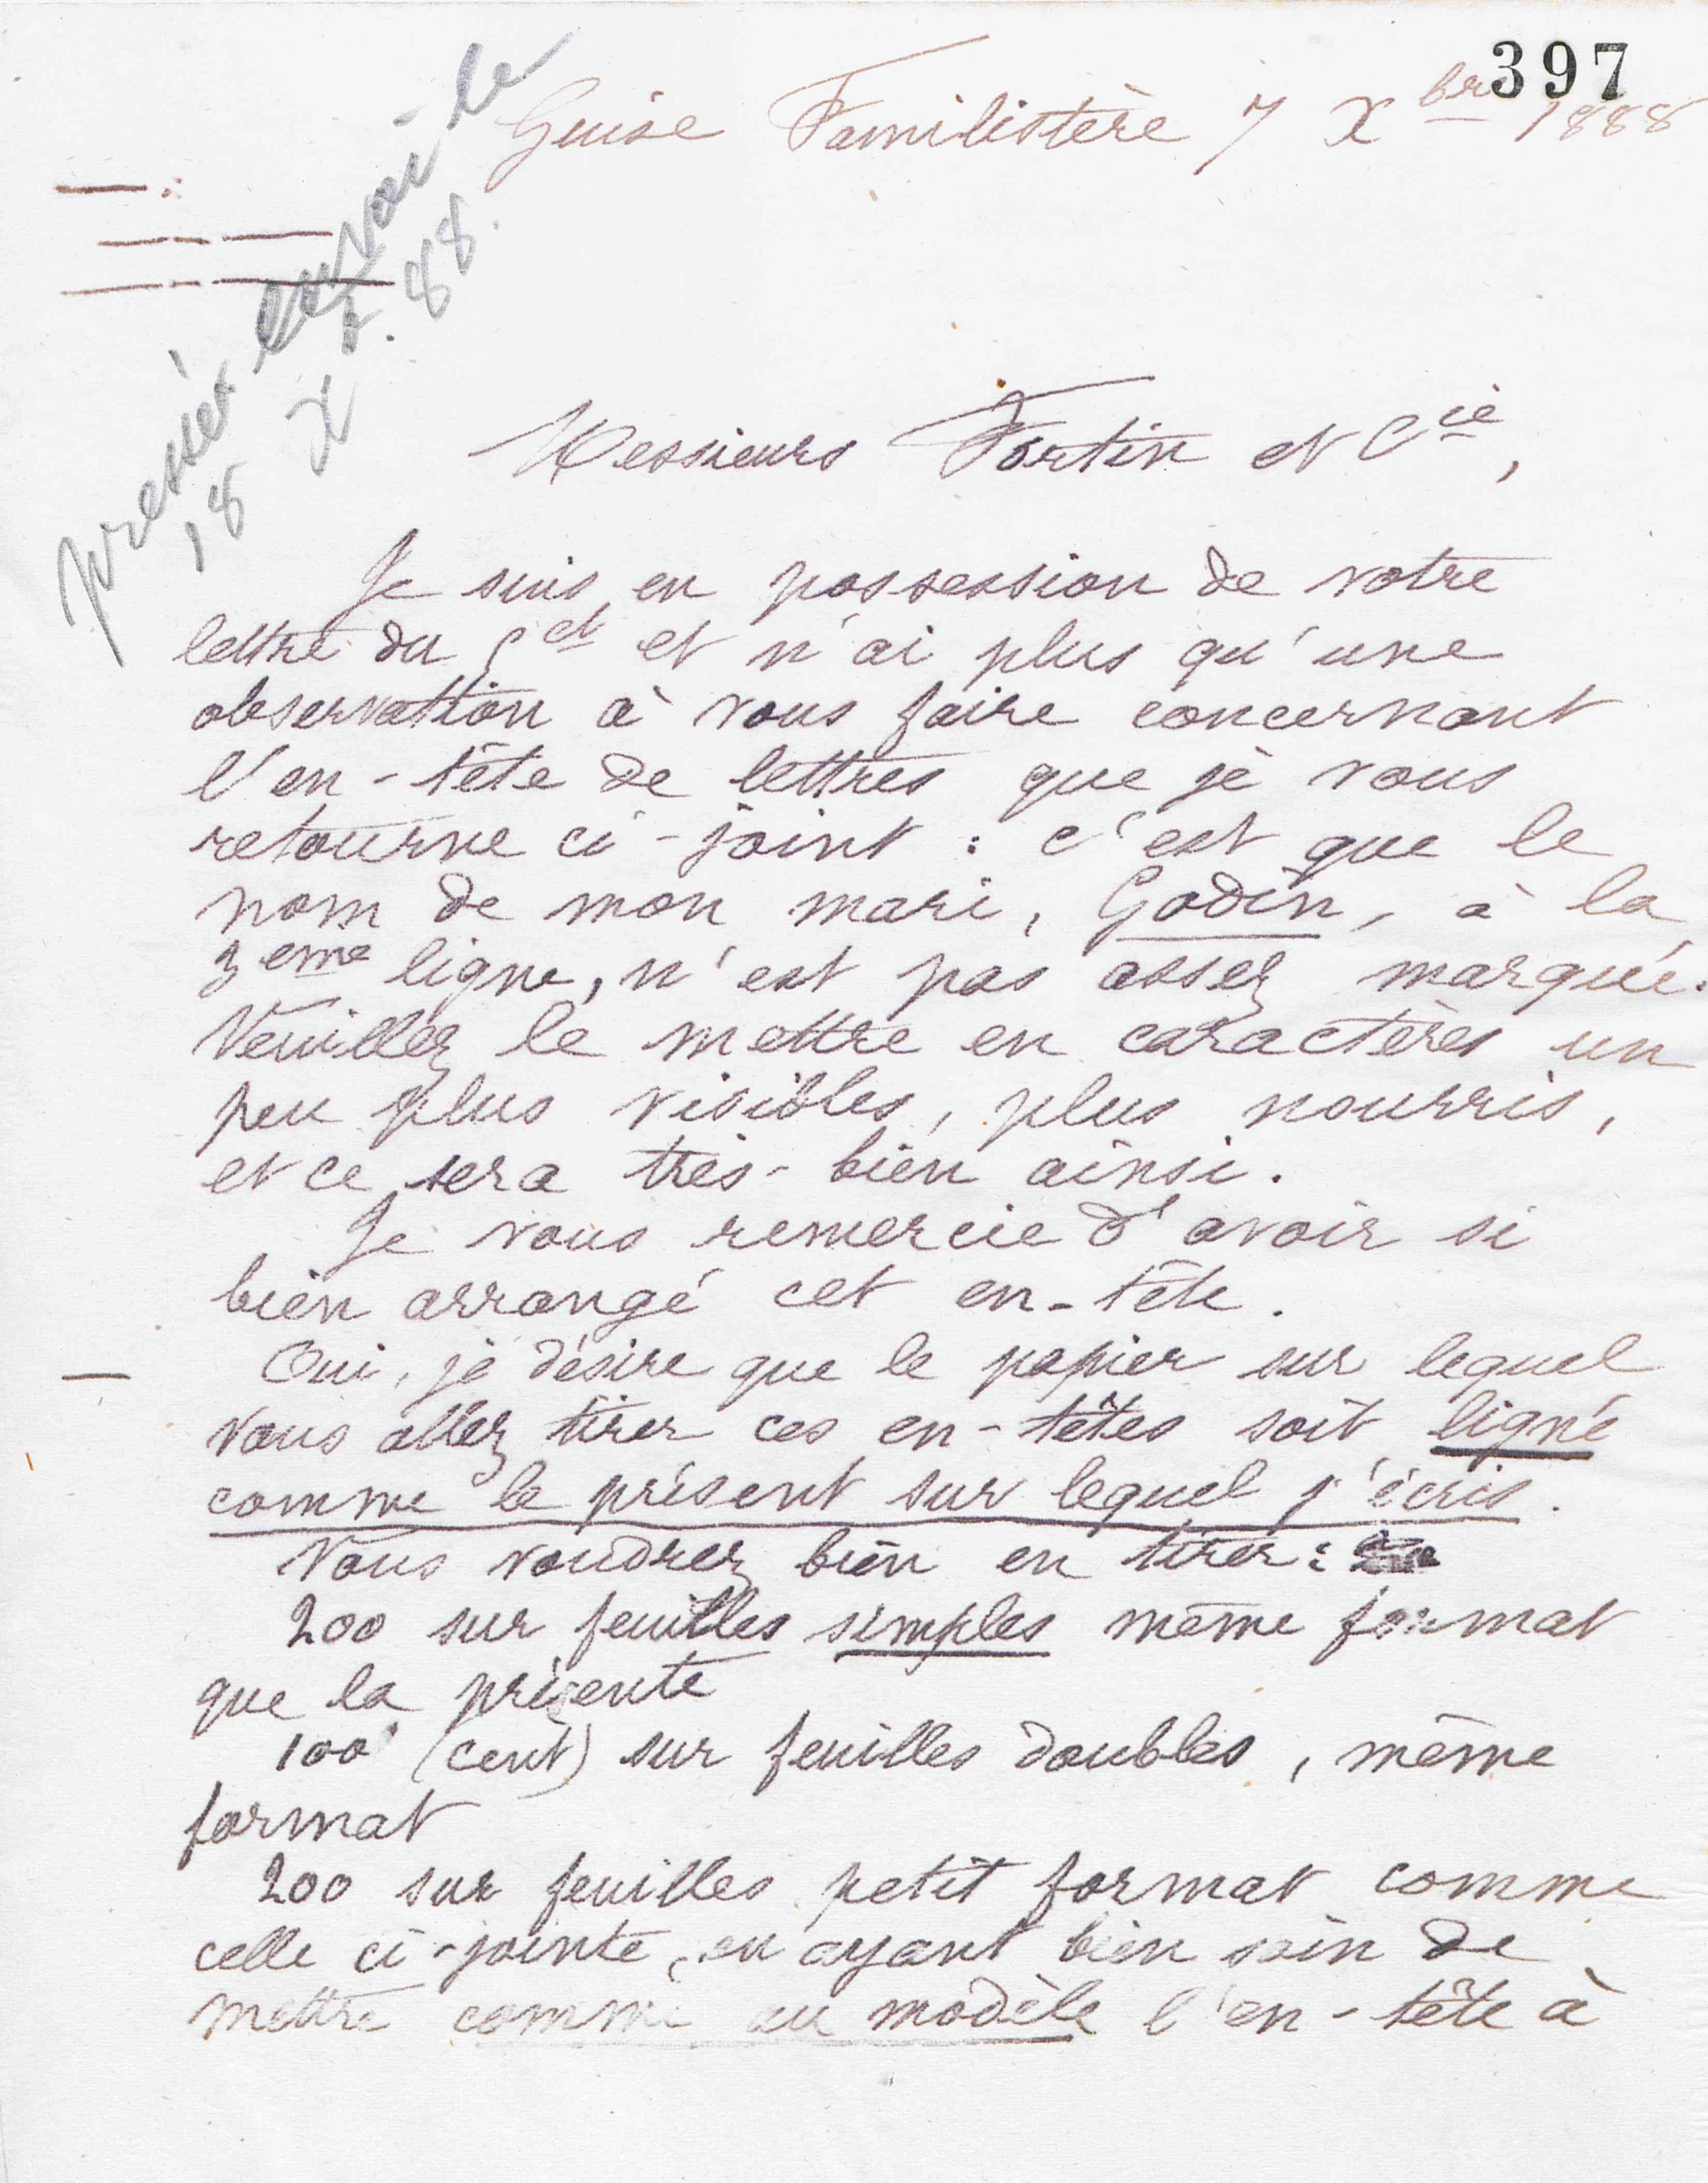 397
Guise Familistère 7 Xbre 1888
premier envoi le
18 X
Messieurs Fortin et Cie,
Je suis en possession de votre
lettre du 5 ct et n'ai plus qu'une
observation à vous faire concernant
l'en-tête de lettres que je vous
retourne ci-joint : c'est que le
nom de mon mari, Godin, à la
3eme ligne, n'est pas assez marqué.
Veuillez le mettre en caractères un
peu plus visibles, plus nourris,
et ce sera très-bien ainsi.
Je vous remercie d'avoir si
bien arrangé cet en-tête.
Oui, je désire que le papier sur lequel
vous allez tirer ces en-têtes soit ligné
comme le présent sur lequel j'écris.
Vous voudrez bien en tirer :
200 sur feuilles simples même format
que la présente
100 (cent) sur feuilles doubles, même
format
200 sur feuilles petit format comme
celle ci-jointe, en ayant bien soin de
mettre comme au modèle l'en-tête à